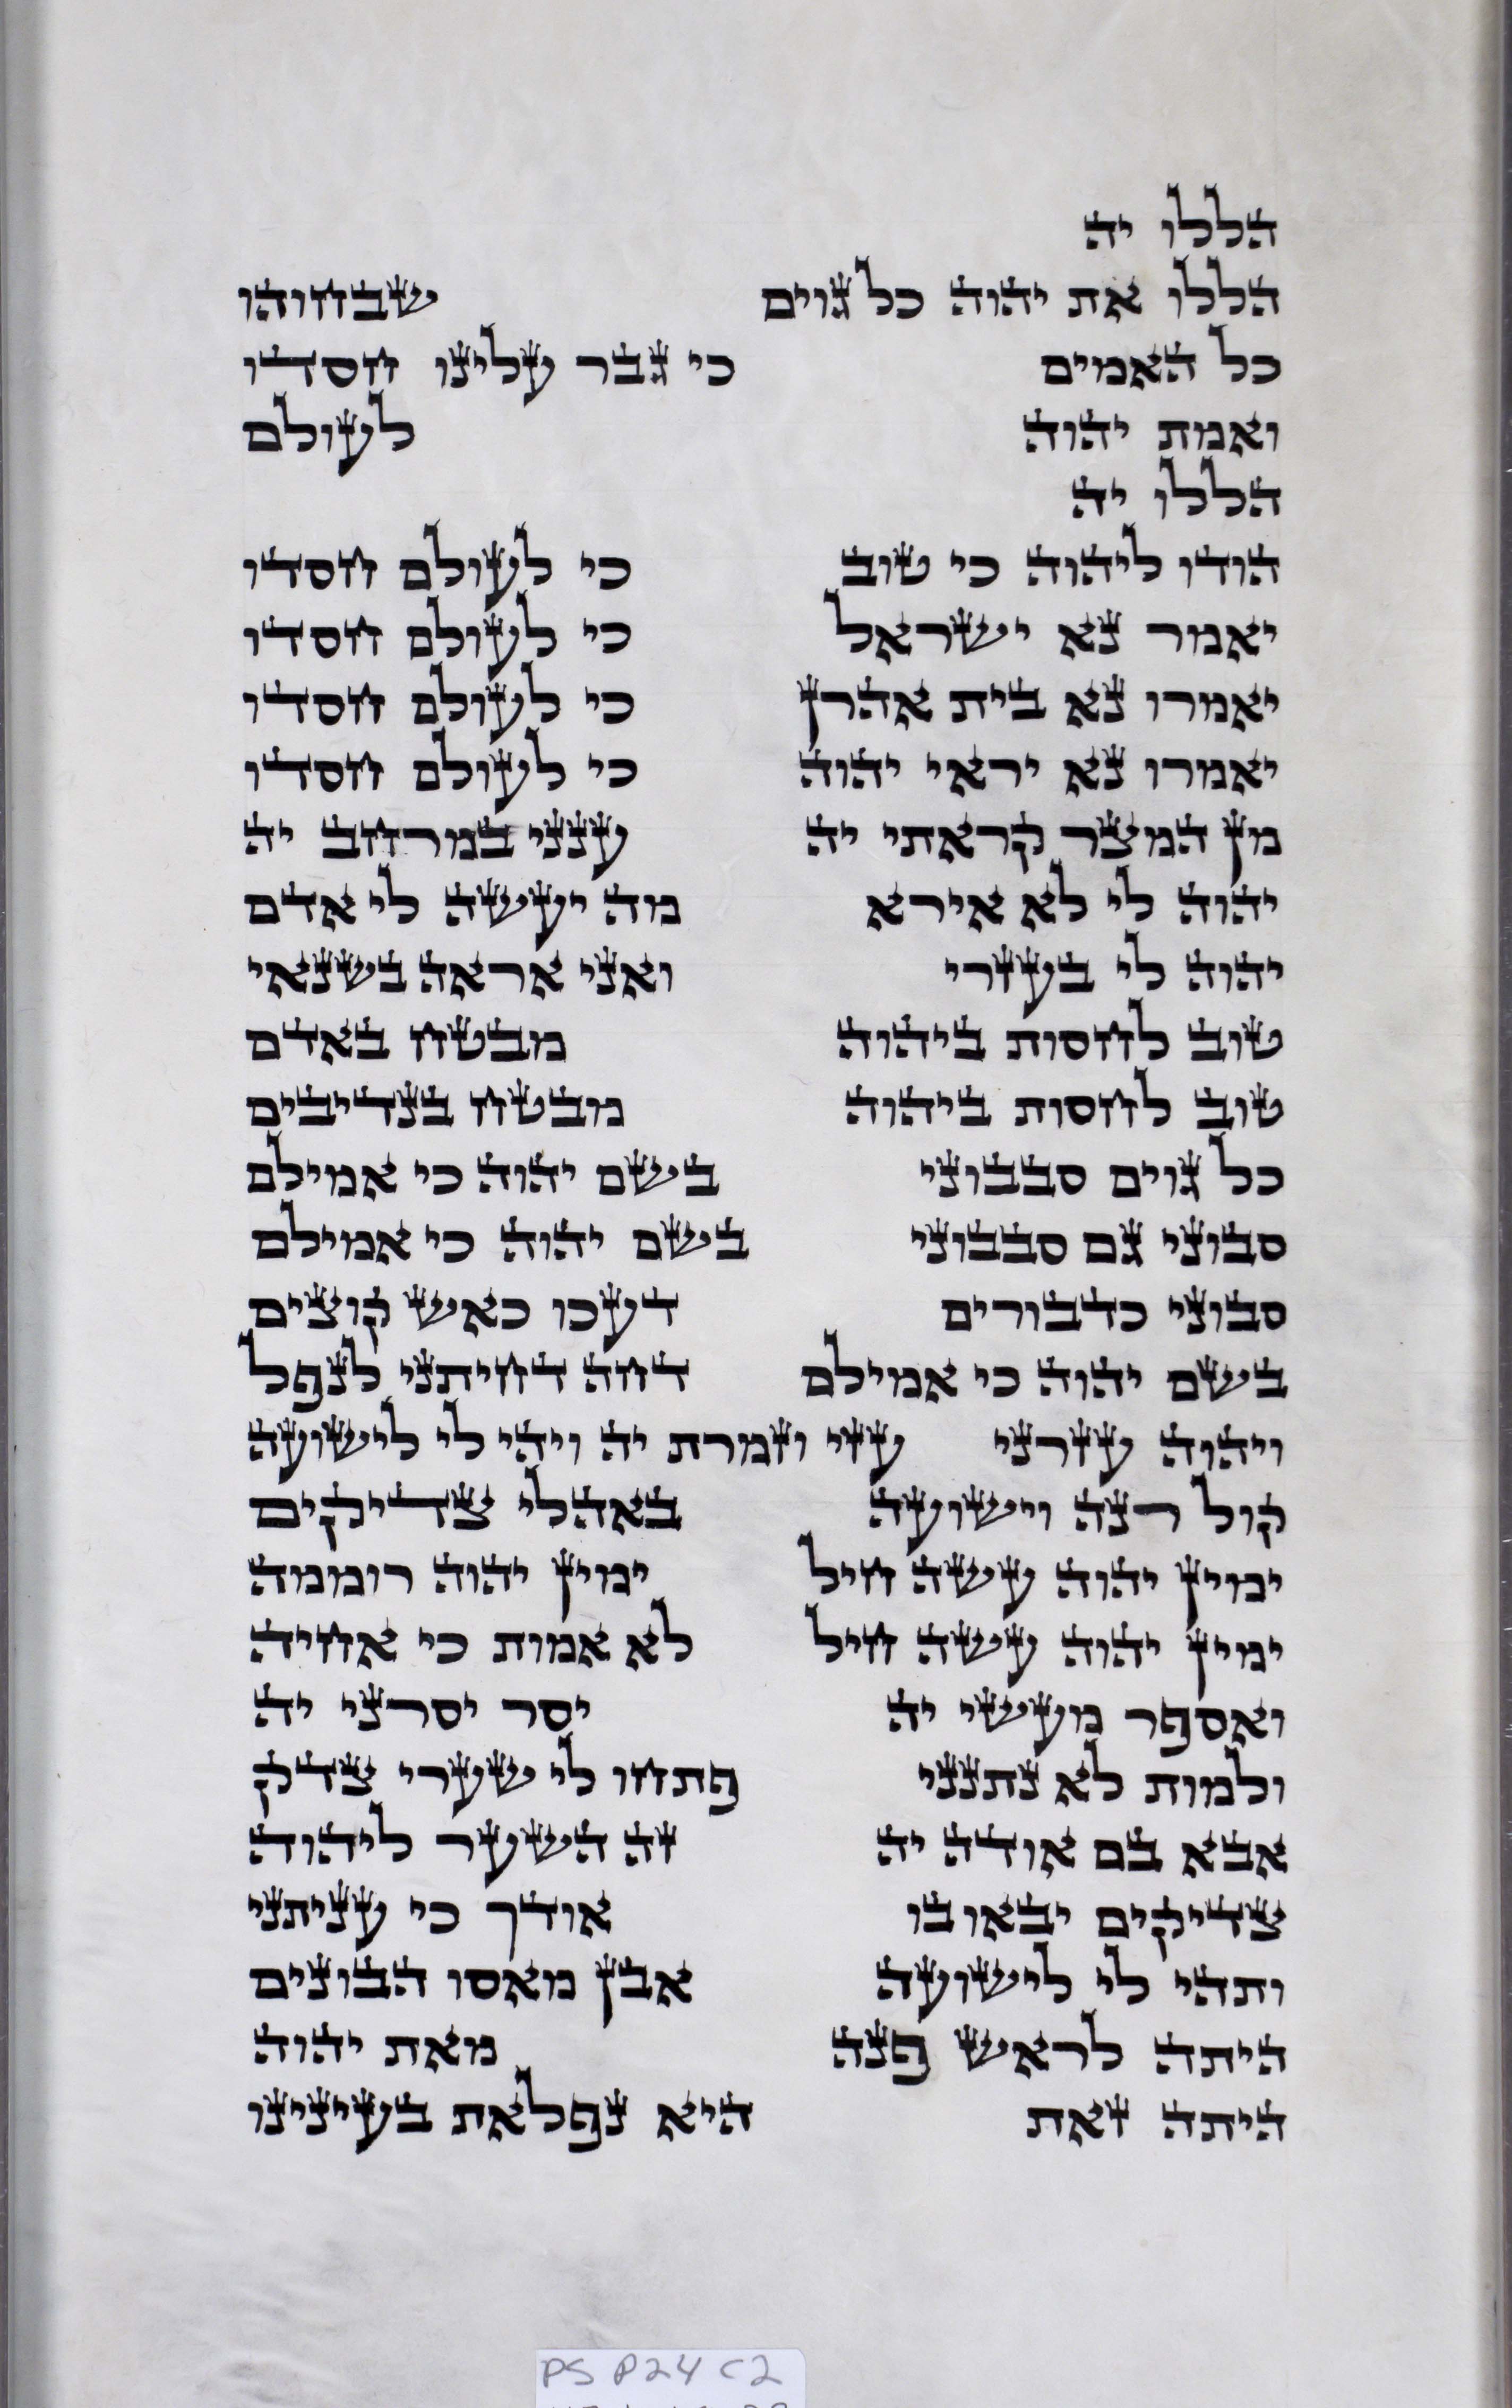 הללו יה
הללו את יהוה כל גוים שבחוהו
כל האמים כי גבר עלינו חסדו
ואמת יהוה לעולם
הללו יה
הודו ליהוה כי טוב כי לעולם חסדו
יאמר נא ישראל כי לעולם חסדו
יאמרו נא בית אהרן כי לעולם חסדו
יאמרו נא יראי יהוה כי לעולם חסדו
מן המצר קראתי יה ענני במרחב יה
יהוה לי לא אירא מה יעשה לי אדם
יהוה לי בעזרי ואני אראה בשנאי
טוב לחסות ביהוה מבטח באדם
טוב לחסות ביהוה מבטח בנדיבים
כל גוים סבבוני בשם יהוה כי אמילם
סבוני גם סבבוני בשם יהוה כי אמילם
סבוני כדבורים דעכו כאש קוצים
בשם יהוה כי אמילם דחה דחיתני לנפל
ויהוה עזרני עזי וזמרת יה ויהי לי לישועה
קול רנה וישועה באהלי צדיקים
ימין יהוה עשה חיל ימין יהוה רוממה
ימין יהוה עשה חיל לא אמות כי אחיה
ואספר מעשי יה יסר יסרני יה
ולמות לא נתנני פתחו לי שערי צדק
אבא בם אודה יה זה השער ליהוה
צדיקים יבאו בו אודך כי עניתני
ותהי לי לישועה אבן מאסו הבונים
היתה לראש פנה מאת יהוה
היתה זאת היא נפלאת בעינינו
PS P24 C2